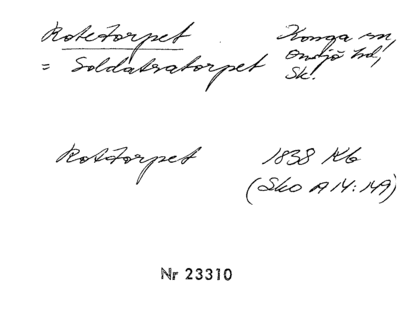 Rotetorpet Konga sn,
= Soldatratorpet Onsjö hd,
Sk.
Rottorpet 1838 Kb
(Sko A 14:149)
Nr 23310